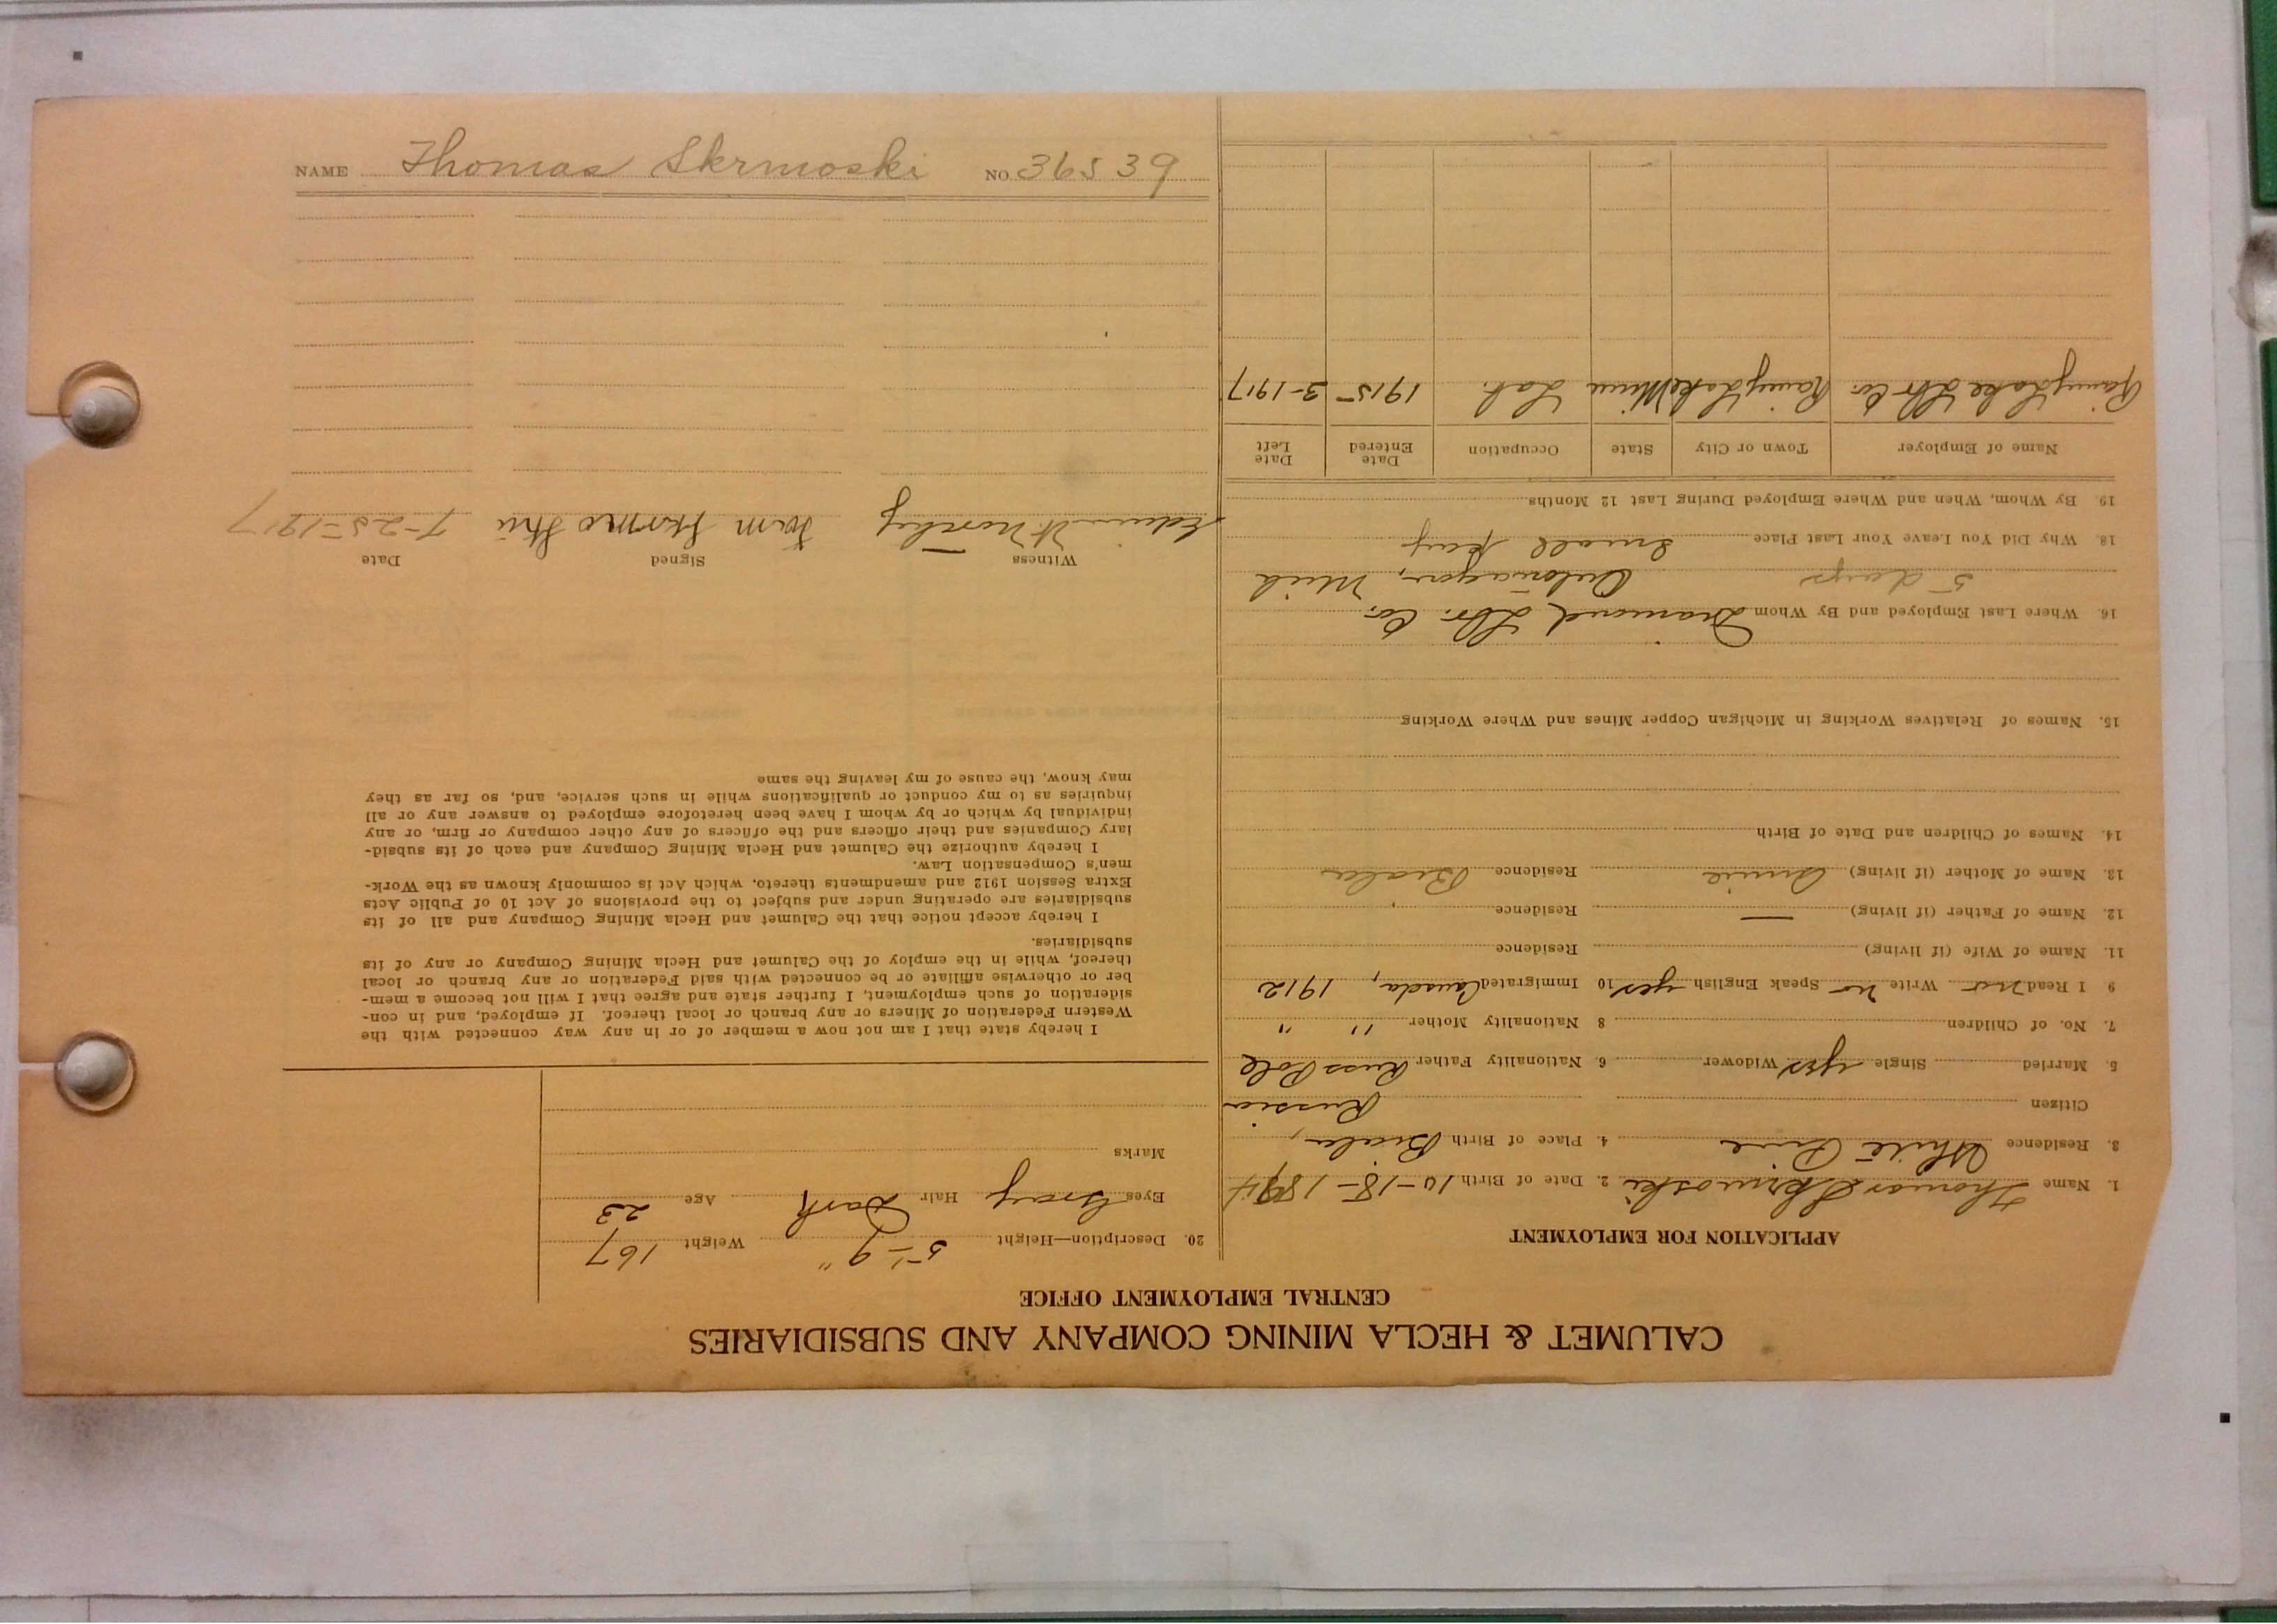 NAME Thomas Skrmoski NO. 36539
CALUMET & HECLA MINING COMPANY AND SUBSIDIARIES
CENTRAL EMPLOYMENT OFFICE
APPLICATION FOR EMPLOYMENT
1. Name Thomas Skrmoski 2. Date of Birth 10-18-1894
3. Residence White Pine 4. Place of Birth Biala,
Citizen Russia
5. Married Single yes Widower 6. Nationality Father Russ Pole
7. No. of Children 8 Nationality Mother " "
9 I Read no Write no Speak English yes 10 Immigrated Canada, 1912
11. Name of Wife (if living) Residence
12. Name of Father (if living) — Residence
13. Name of Mother (if living) Annie Residence Biala
14. Names of Children and Date of Birth
15. Names of Relatives Working in Michigan Copper Mines and Where Working
16. Where Last Employed and By Whom Diamond Lbr. Co.
5 days Ontonagon, Mich
18. Why Did You Leave Your Last Place Small pay
19. By Whom, When and Where Employed During Last 12 Months
Name of Employer Town or City State Occupation Date Entered Date Left
Rainy Lake Lbr Co. Rainy Lake Minn Lab. 1915 3-1917
20. Description—Height 5'-9" Weight 167
Eyes Gray Hair Dark Age 23
Marks
I hereby state that I am not now a member of or in any way connected with the
Western Federation of Miners or any branch or local thereof. If employed, and in con-
sideration of such employment, I further state and agree that I will not become a mem-
ber or otherwise affiliate or be connected with said Federation or any branch or local
thereof, while in the employ of the Calumet and Hecla Mining Company or any of its
subsidiaries.
I hereby accept notice that the Calumet and Hecla Mining Company and all of its
subsidiaries are operating under and subject to the provisions of Act 10 of Public Acts
Extra Session 1912 and amendments thereto, which Act is commonly known as the Work-
men's Compensation Law.
I hereby authorize the Calumet and Hecla Mining Company and each of its subsid-
iary Companies and their officers and the officers of any other company or firm, or any
individual by which or by whom I have been heretofore employed to answer any or all
inquiries as to my conduct or qualifications while in such service, and, so far as they
may know, the cause of my leaving the same
Witness Signed Date
7-25-1917